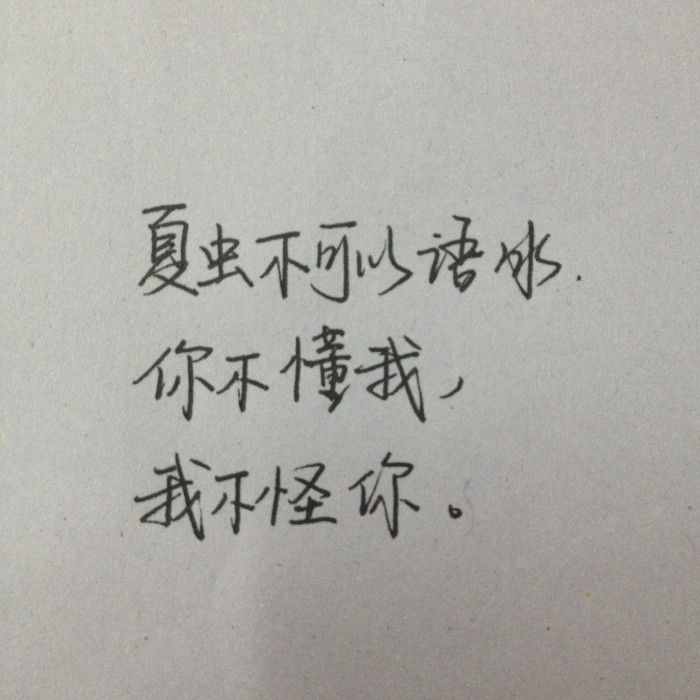 夏虫不可以语冰.
你不懂我，
我不怪你。